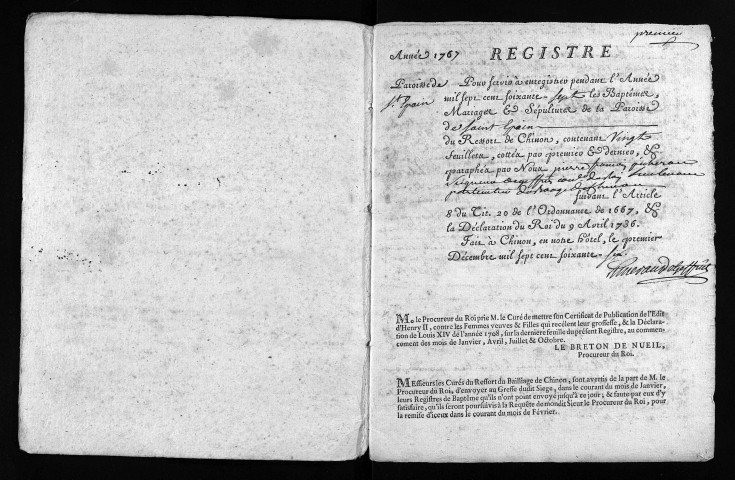 premier
Année 1767 REGISTRE
Paroisse de St Epain
Pour servir à enregistrer pendant l'Année
mil sept cent soixante-sept les Baptêmes,
Mariages & Sépultures de la Paroisse
de Saint Epain
du Ressort de Chinon, contenant Vingt
feuillets, cottés par premier & dernier, &
paraphés par Nous pierre françois
Seigneur
suivant l'Article
8 du Tit. 20 de l'Ordonnance de 1667, &
la Déclaration du Roi du 9 Avril 1736.
Fait à Chinon, en notre hôtel, le premier
Décembre mil sept cent soixante-six.
M. le Procureur du Roi prie M. le Curé de mettre son Certificat de Publication de l'Edit
d'Henry II, contre les Femmes veuves & Filles qui recélent leur grossesse, & la Déclara-
tion de Louis XIV de l'année 1708, sur la derniere feuille du présent Registre, au commen-
cement des mois de Janvier, Avril, Juillet & Octobre.
LE BRETON DE NUEIL,
Procureur du Roi.
Messieurs les Curés du Ressort du Bailliage de Chinon, sont avertis de la part de M. le
Procureur du Roi, d'envoyer au Greffe dudit Siege, dans le courant du mois de Janvier,
leurs Registres de Baptême qu'ils n'ont point envoyé jusqu'à ce jour; & faute par eux d'y
satisfaire, qu'ils seront poursuivis à la Requête de mondit Sieur le Procureur du Roi, pour
la remise d'iceux dans le courant du mois de Février.